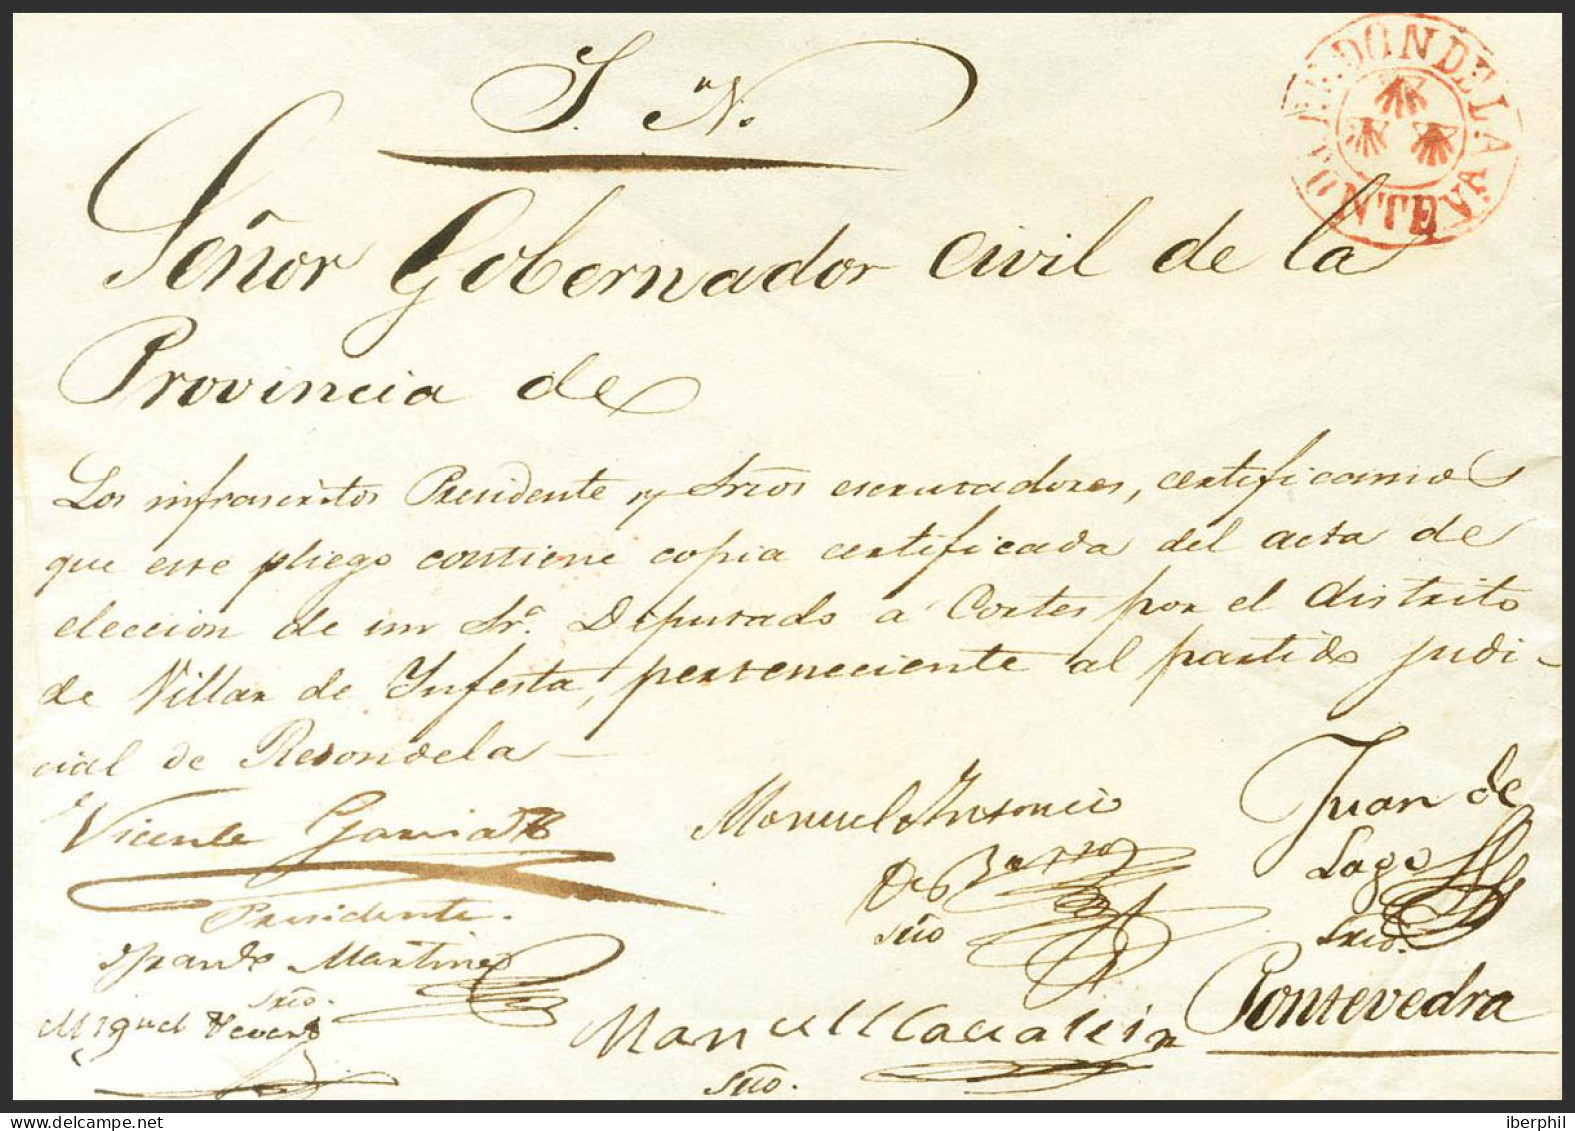 S. N.
REDONDELA
PONTEVA
Señor Gobernador Civil de la
Provincia de
Los infrascritos Presidente y Srios escrutadores, certificamos
que este pliego contiene copia certificada del acta de
eleccion de un Sr. Diputado a Cortes por el distrito
de Villar de Infesta, perteneciente al partido judi-
cial de Redondela
Vicente Garcia
Presidente.
Manuel Antonio
de Barros
Srio
Juan de
Lago
Srio.
Martinez
Srio.
Miguel
Manuel
Srio.
Pontevedra
delcampe.net
iberphil